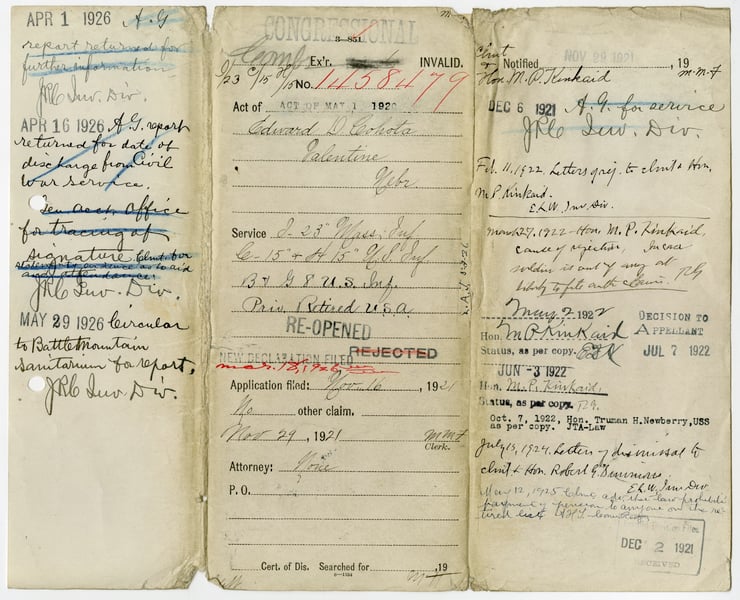 APR 1 1926 A.G.
report returned for
further information
JRC Inv. Div.
APR 16 1926 A.G. report
returned for date of
discharge from Civil
War service.
Gen. Acct. Office
for tracing of
signature Clmt. for
as to aid
and attendance
JRC Inv. Div.
MAY 29 1926 Circular
to Battle Mountain
Sanitarium for report.
JRC Inv. Div.
CONGRESSIONAL
3-351
Ex'r. INVALID.
I/23 C/15 H/15 No. 1458479
Act of ACT OF MAY 1, 1920
Edward D. Cohota
Valentine
Nebr
Service I-23" Mass. Inf
C-15" & H 15" U.S. Inf
B & G 8 U.S. Inf.
Priv. Retired U.S.A.
RE-OPENED
NEW DECLARATION FILED REJECTED
Mar. 18, 1926
Application filed: Nov. 16, 1921
No other claim.
Nov 29, 1921 MMF
Clerk.
Attorney: None
P. O.
Cert. of Dis. Searched for ,19
Clmt
& Notified NOV 29 1921 , 19
Hon. M. P. Kinkaid M-M-F
DEC 6 1921 A.G. for service
JRC Inv. Div.
Feb. 11, 1922, Letters to clmt & Hon.
M.P. Kinkaid.
E.L.W. Inv Div.
March 27, 1922 - Hon. M. P. Kinkaid,
cause of rejection,
soldier is out of any
May 2, 1922
DECISION TO
APPELLANT
Hon. M P Kinkaid
Status, as per copy.
JUL 7 1922
JUN -3 1922
Hon. M. P. Kinkaid,
Status, as per copy.
Oct. 7, 1922, Hon. Truman H. Newberry, USS
as per copy. JTA-Law
July 15, 1924. Letters of dismissal to
clmt & Hon. Robert G. Simmons.
E.L.W. Inv Div
May 12, 1925 Clmt adv. that law prohibits
payment of pension to anyone on the re-
tired list.
DEC 2 1921
RECEIVED